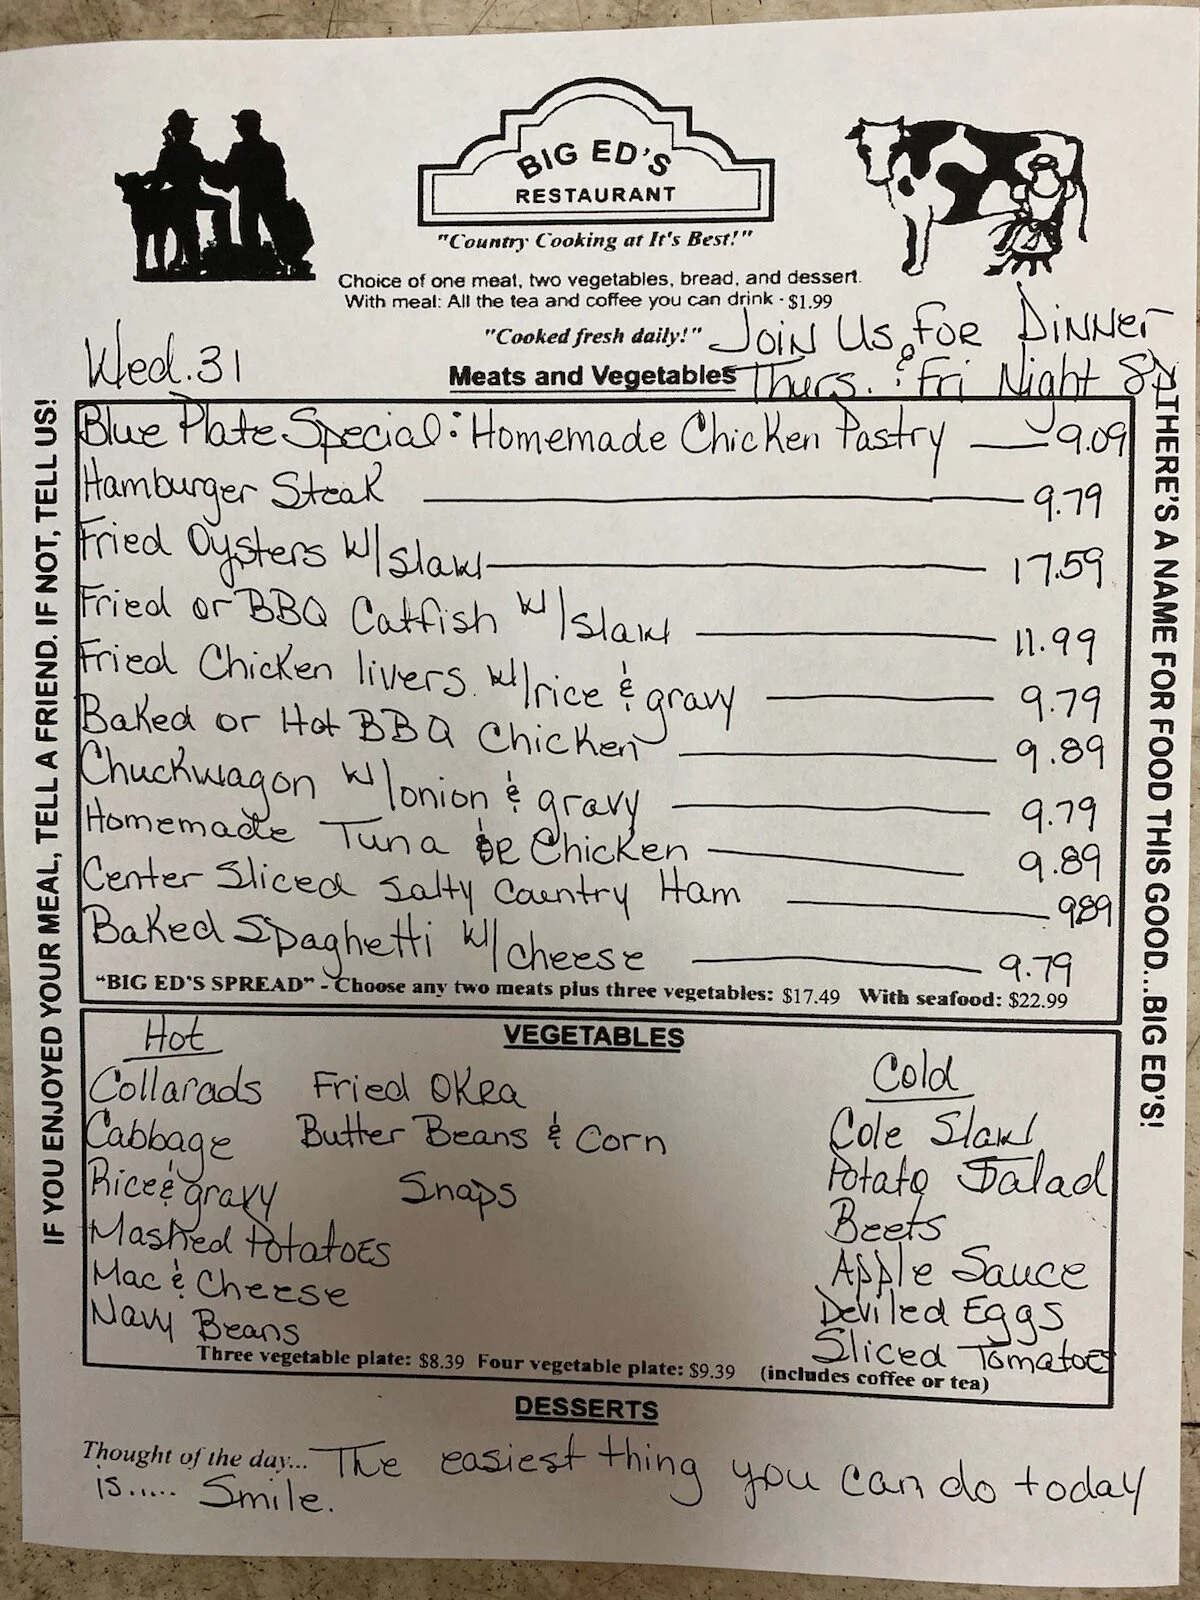 BIG ED'S
RESTAURANT
"Country Cooking at It's Best!"
Choice of one meat, two vegetables, bread, and dessert.
With meal: All the tea and coffee you can drink - $1.99
"Cooked fresh daily!"
Join Us for Dinner
Thurs. & Fri Night 8p
Wed. 31
Meats and Vegetables
Blue Plate Special: Homemade Chicken Pastry 9.09
Hamburger Steak 9.79
Fried Oysters w/slaw 17.59
Fried or BBQ Catfish w/slaw 11.99
Fried Chicken livers w/rice & gravy 9.79
Baked or Hot BBQ Chicken 9.89
Chuckwagon w/onion & gravy 9.79
Homemade Tuna or Chicken 9.89
Center Sliced Salty Country Ham 989
Baked Spaghetti w/cheese 9.79
"BIG ED'S SPREAD" - Choose any two meats plus three vegetables: $17.49 With seafood: $22.99
VEGETABLES
Hot
Collarads Fried Okra
Cabbage Butter Beans & Corn
Rice & gravy Snaps
Mashed Potatoes
Mac & Cheese
Navy Beans
Cold
Cole Slaw
Potato Salad
Beets
Apple Sauce
Deviled Eggs
Sliced Tomatoes
Three vegetable plate: $8.39 Four vegetable plate: $9.39 (includes coffee or tea)
DESSERTS
Thought of the day... The easiest thing you can do today
is..... Smile.
IF YOU ENJOYED YOUR MEAL, TELL A FRIEND. IF NOT, TELL US!
THERE'S A NAME FOR FOOD THIS GOOD...BIG ED'S!